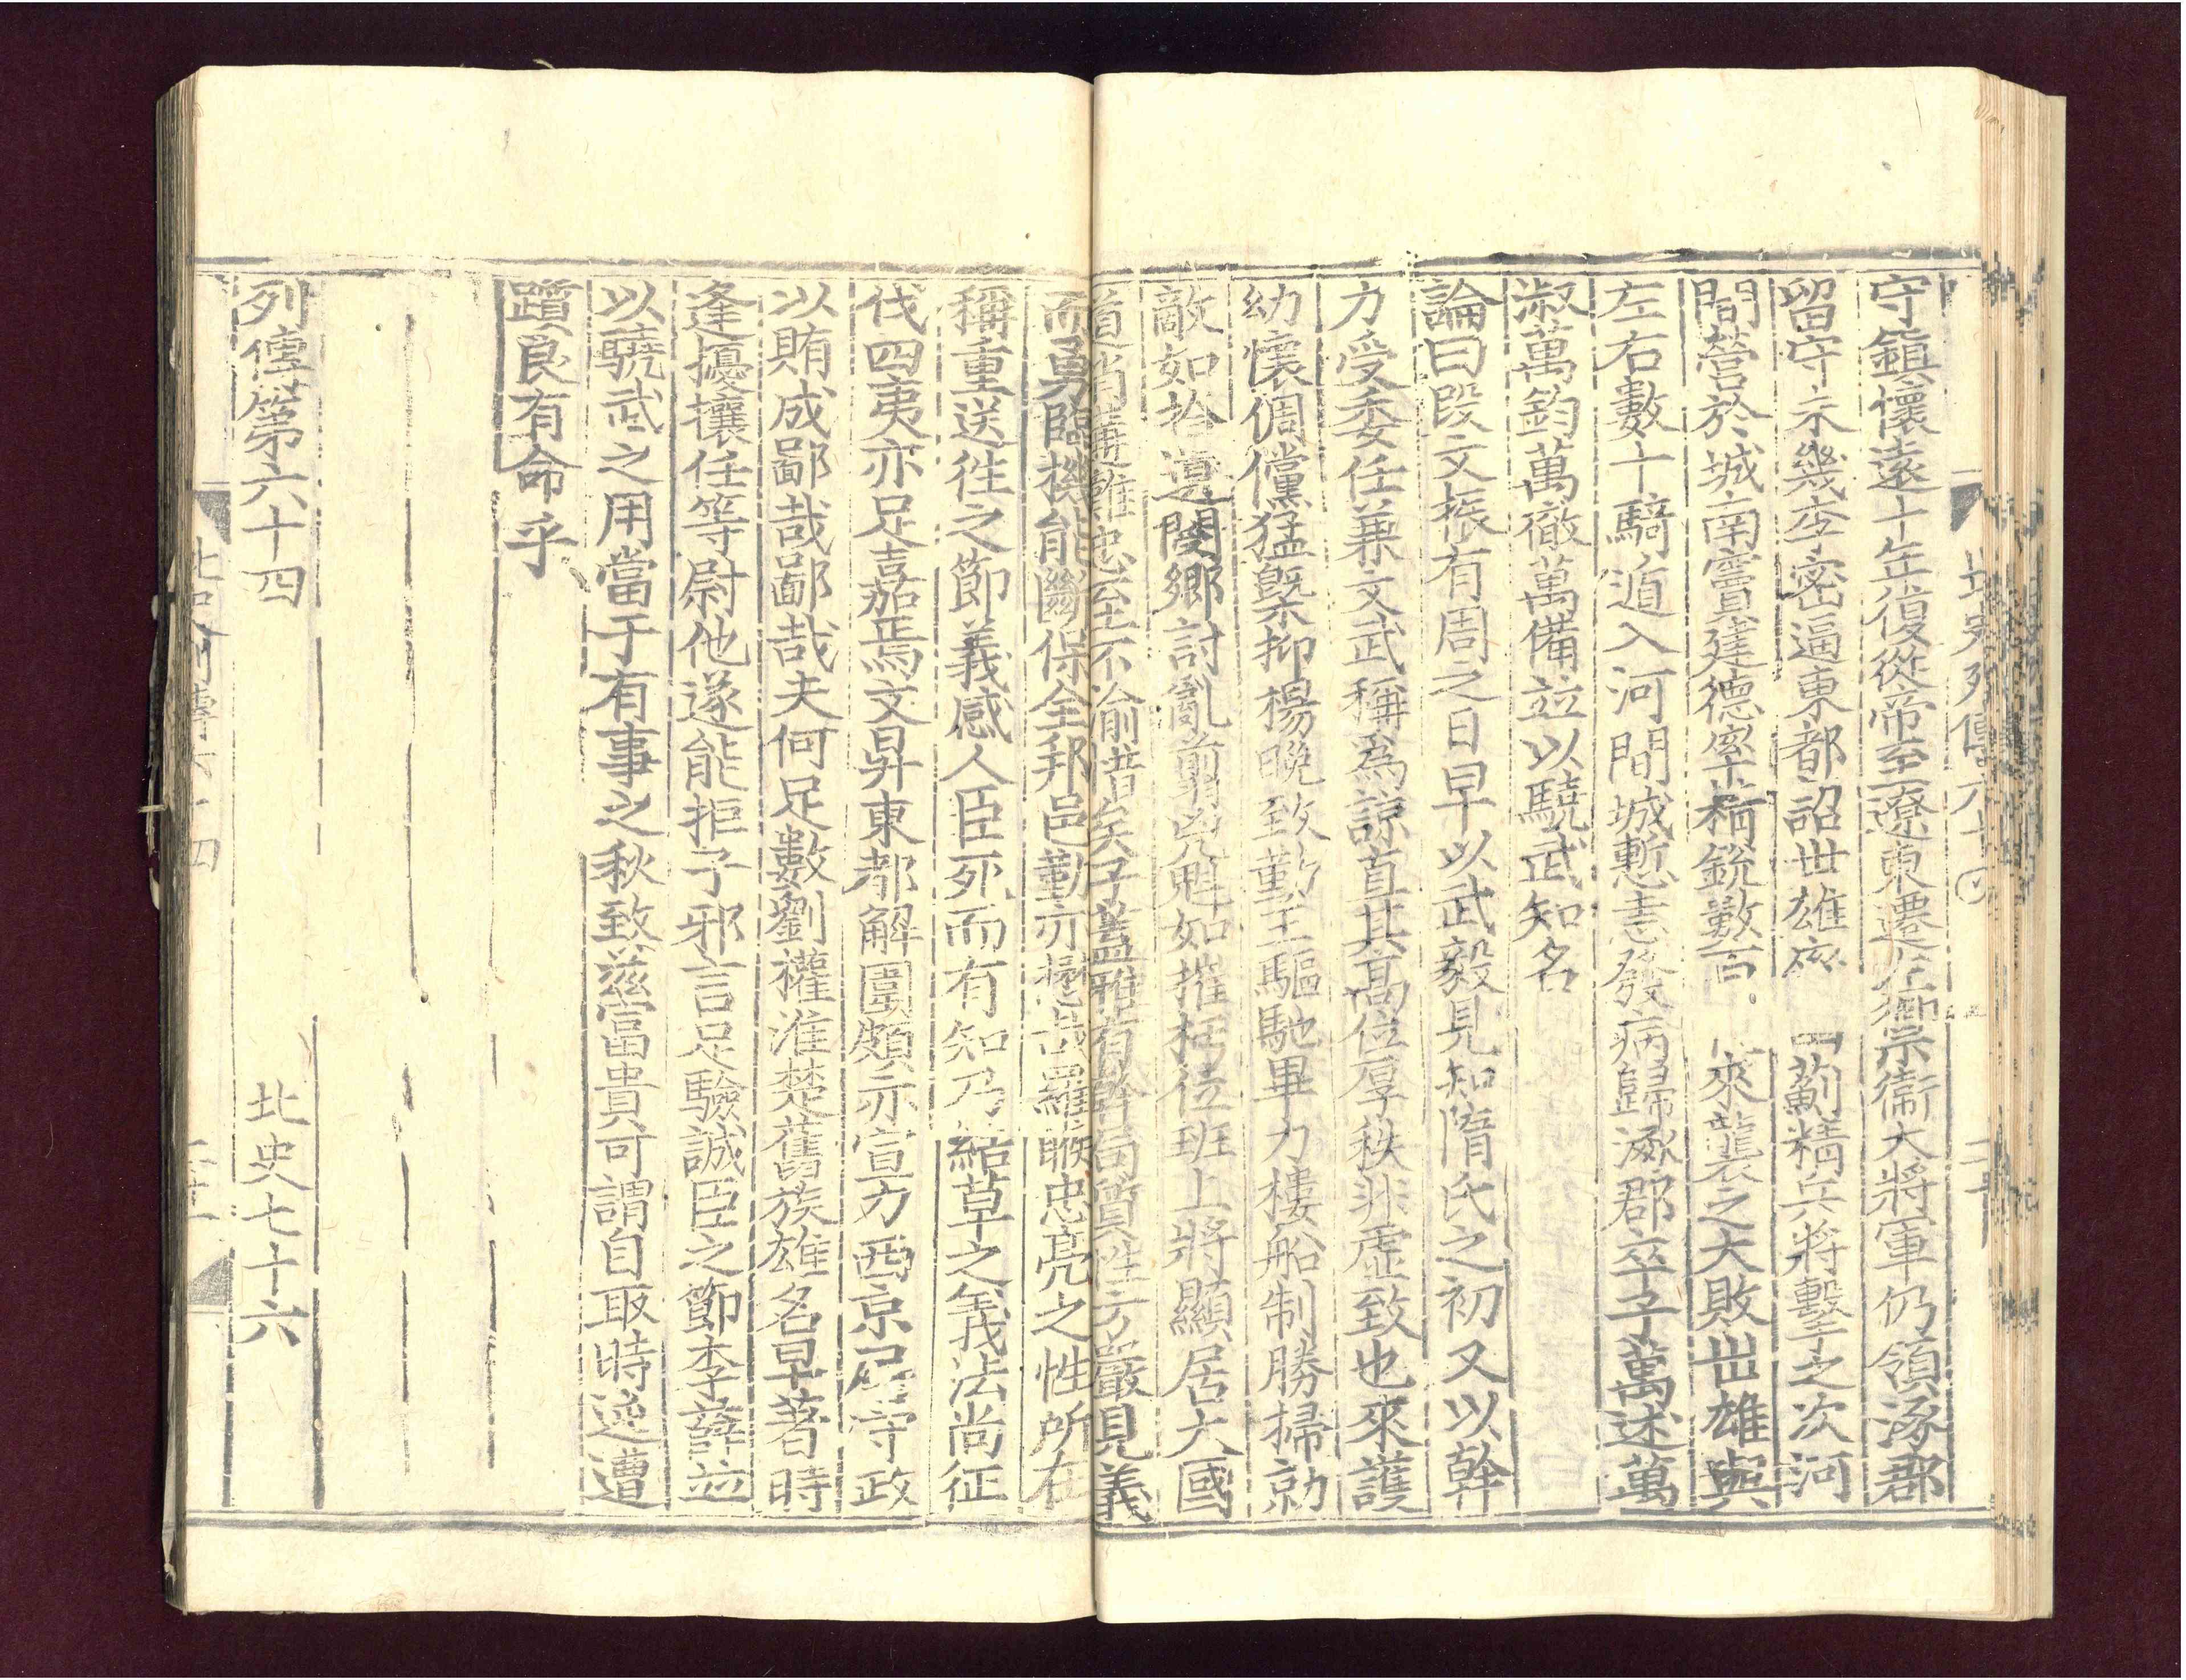 北史列傳六十四
守鎮懷遠十年復從帝至遼東遷左禦衛大將軍仍領涿郡
留守未幾李密逼東都詔世雄率幽薊精兵將擊之次河
間營於城南竇建德率精銳數百 來襲之大敗世雄與
左右數十騎遁入河間城慙恚發病歸涿郡卒子萬述萬
淑萬鈞萬徹萬備並以驍武知名
論曰段文振有周之日早以武毅見知隋氏之初又以幹
力受委任兼文武稱爲諒直其高位厚秩非虛致也來護
幼懷倜儻猛槩抑揚晚致勤王驅馳畢力樓船制勝掃勍
敵如拾遺閿鄉討亂翦兇魁如摧枯位班上將顯居大國
道消遘難忠至不渝惜矣子蓋雅有幹局質性方嚴見義
而勇臨機能斷保全邦邑勤亦懋哉羅睺忠亮之性所在
稱重送往之節義感人臣死而有知乃結草之義法尚征
伐四夷亦足嘉焉文昇東都解圍頗亦宣力西京居守政
以賄成鄙哉鄙哉夫何足數劉權淮楚舊族雄名早著時
逢擾攘任等尉他遂能拒子邪言足驗誠臣之節李薛並
以驍武之用當于有事之秋致茲富貴可謂自取時逆遭
躓良有命乎
列傳第六十四 北史七十六
北史列傳六十四